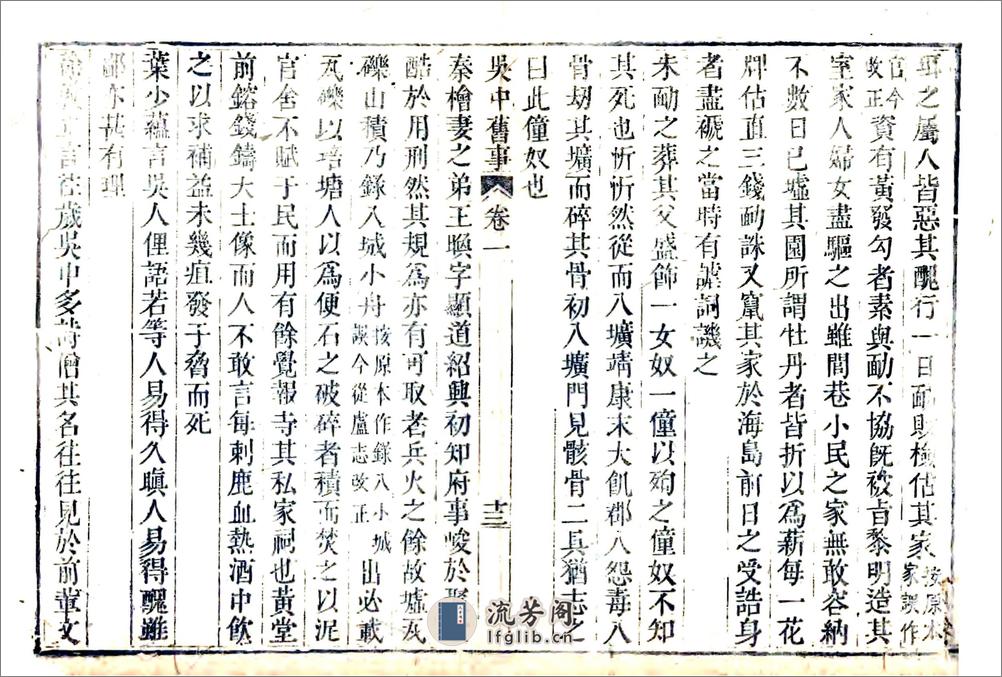 耳之屬人皆惡其醜行一日勔敗檢估其家按原本家誤作
官今改正資有黃發勾者素與勔不協旣被旨黎明造其
室家人婦女盡驅之出雖閭巷小民之家無敢容納
不數日已墟其園所謂牡丹者皆折以爲薪每一花
牌估直三錢勔誅又竄其家於海島前日之受誥身
者盡褫之當時有謔詞譏之
朱勔之葬其父盛飾一女奴一僮以殉之僮奴不知
其死也忻忻然從而入壙靖康末大飢郡人怨毒入
骨刼其壙而碎其骨初入壙門見骸骨二具猶志之
曰此僮奴也
吳中舊事 卷一 十二
秦檜妻之弟王㬇字顯道紹興初知府事峻於聚
酷於用刑然其規爲亦有可取者兵火之餘故墟瓦
礫山積乃錄入城小舟按原本作錄八小城誤今從盧志改正出必載
瓦礫以培塘人以爲便石之破碎者積而焚之以泥
官舍不賦于民而用有餘覺報寺其私家祠也黃堂
前鎔錢鑄大士像而人不敢言每刺鹿血熱酒中飮
之以求補益未幾疽發于脅而死
葉少蘊言吳人俚語若等人易得久瞋人易得醜雖
鄙亦甚有理
言徃歲吳中多詩僧其名往往見於前輩文
流芳阁
lfglib.cn